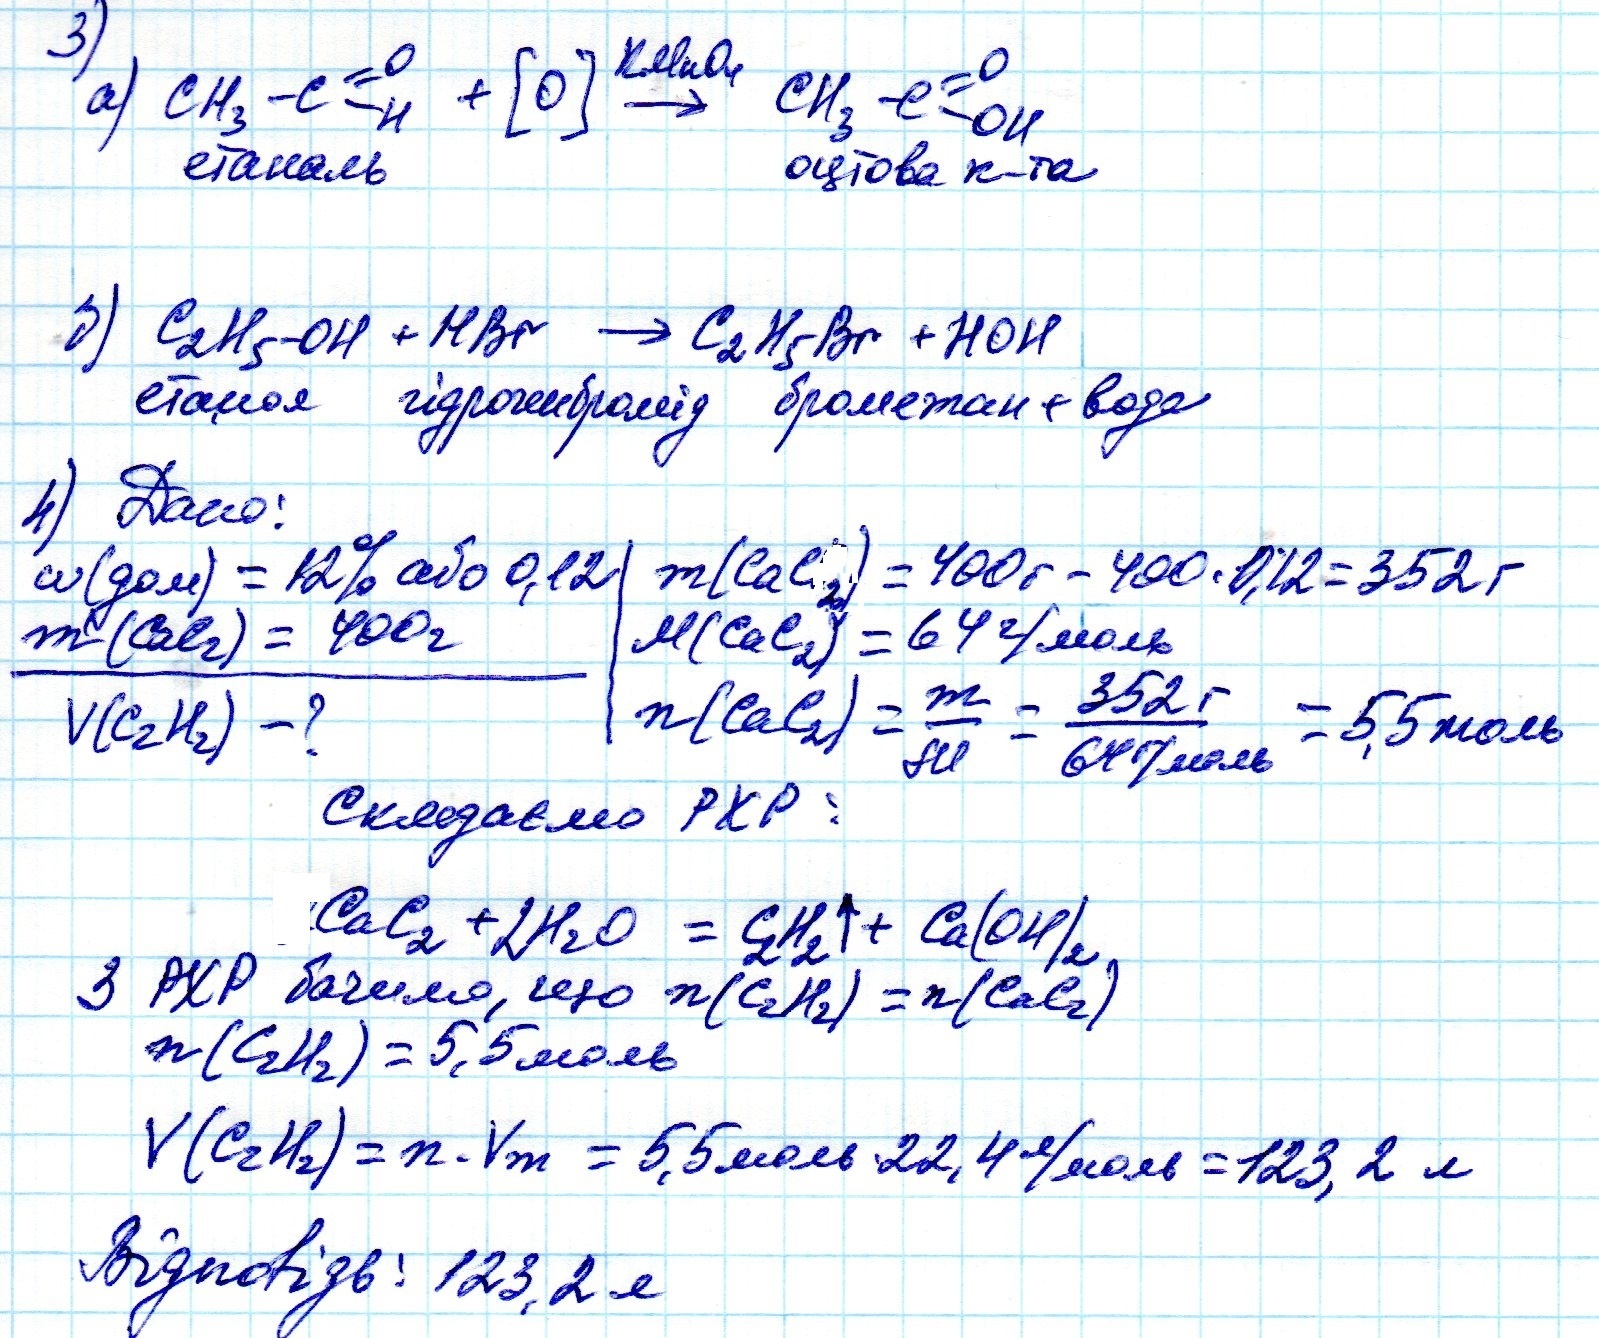 3)
а) CH₃ - C =O -H + [O] KMnO₄ → CH₃ - C =O -OH
етаналь оцтова к-та
б) C₂H₅-OH + HBr → C₂H₅Br + HOH
етанол гідрогенбромід брометан + вода
4) Дано:
w(дом) = 12% або 0,12 m(CaC₂) = 400г - 400·0,12 = 352 г
m(CaC₂) = 400г M(CaC₂) = 64 г/моль
V(C₂H₂) - ? n(CaC₂) = m/M = 352 г/64 г/моль = 5,5 моль
Складаємо РХР:
CaC₂ + 2H₂O = C₂H₂↑ + Ca(OH)₂
З РХР бачимо, що n(C₂H₂) = n(CaC₂)
n(C₂H₂) = 5,5 моль
V(C₂H₂) = n · Vm = 5,5 моль · 22,4 л/моль = 123,2 л
Відповідь: 123,2 л